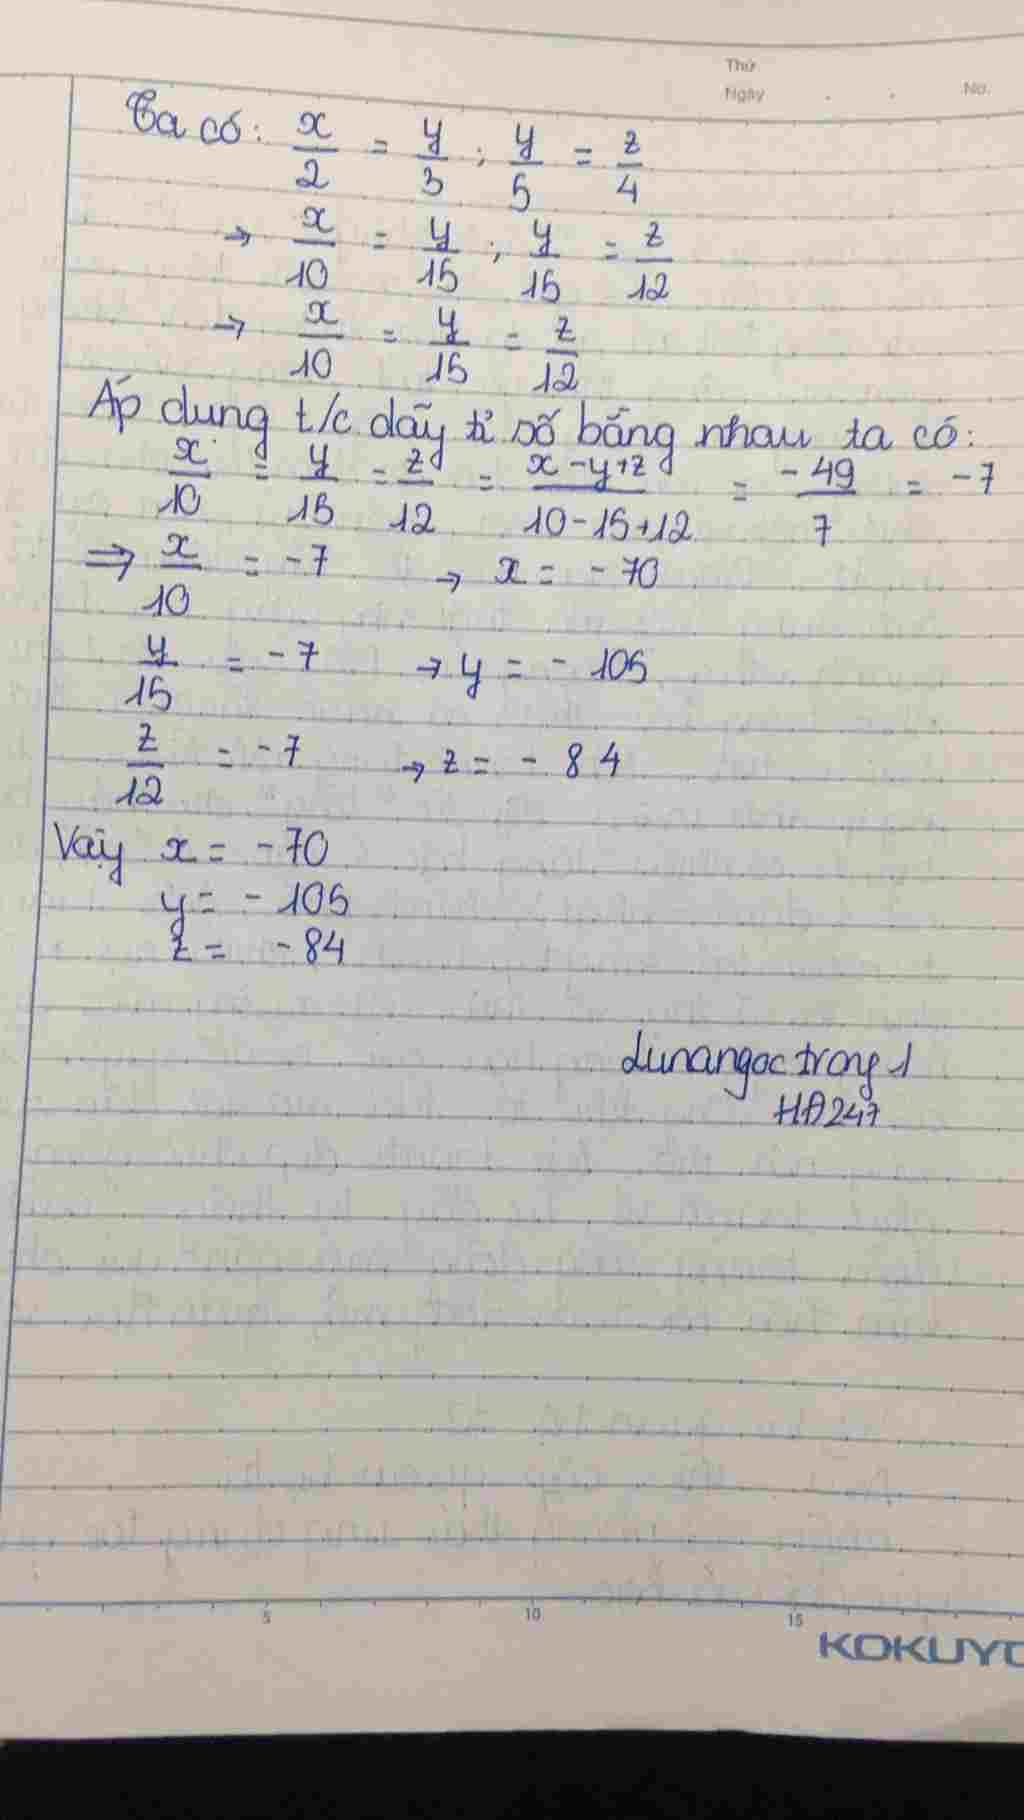 Thứ
Ngày . . No.
Ta có: x/2 = y/3 ; y/5 = z/4
→ x/10 = y/15 ; y/15 = z/12
→ x/10 = y/15 = z/12
Áp dụng t/c dãy tỉ số bằng nhau ta có:
x/10 = y/15 = z/12 = x-y+z/10-15+12 = -49/7 = -7
⇒ x/10 = -7 → x = -70
y/15 = -7 → y = -105
z/12 = -7 → z = -84
Vậy x = -70
y = -105
z = -84
lunangoctrong1
HĐ247
5 10 15
KOKUYO